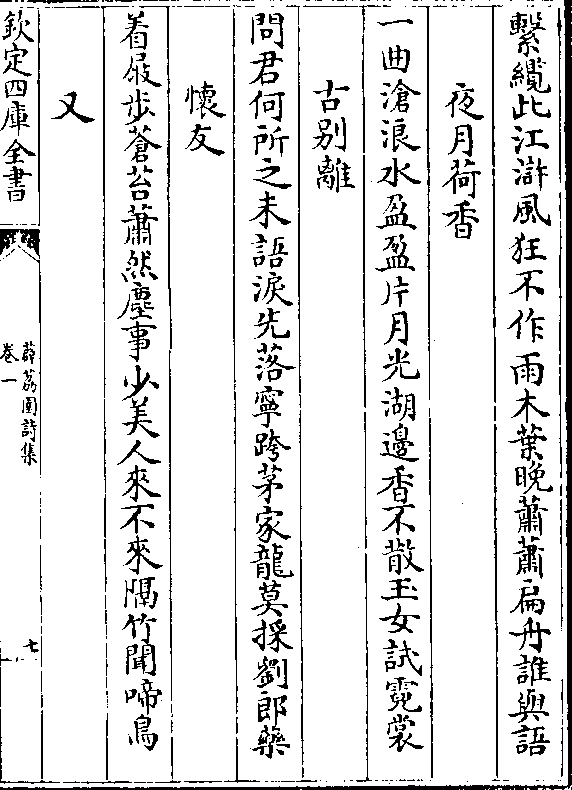 繫纜此江滸風狂不作雨木葉晚蕭蕭扁舟誰與語
夜月荷香
一曲滄浪水盈盈片月光湖邊香不散玉女試霓裳
古别離
問君何所之未語淚先落寧跨茅家龍莫採劉郎藥
懷友
着屐步蒼苔蕭然塵事少美人來不來隔竹聞啼鳥
又
欽定四庫全書
薜荔園詩集
卷一
七